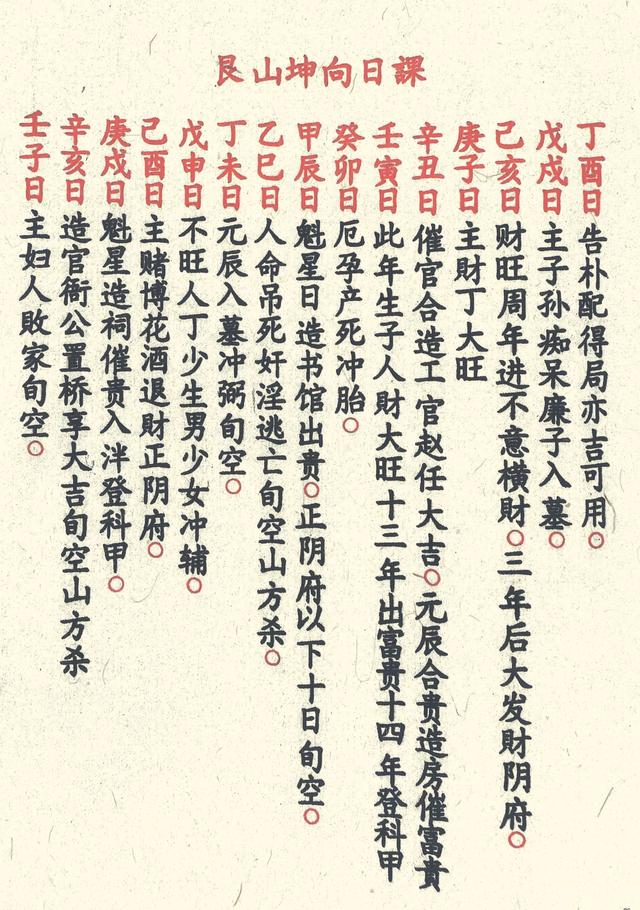 艮山坤向日課
丁酉日告朴配得局亦吉可用○
戊戌日主子孙痴呆廉子入墓○
己亥日财旺周年进不意横財○三年后大发財阴府○
庚子日主財丁大旺
辛丑日催官合造工官赵任大吉○元辰合贵造房催富貴
壬寅日此年生子人財大旺十三年出富贵十四年登科甲
癸卯日厄孕产死冲胎○
甲辰日魁星日造书馆出贵○正阴府以下十日旬空○
乙巳日人命吊死奸淫逃亡旬空山方杀○
丁未日元辰入墓冲弼旬空○
戊申日不旺人丁少生男少女冲辅○
己酉日主赌博花酒退財正阴府○
庚戌日魁星造祠催贵入泮登科甲○
辛亥日造官衙公置桥享大吉旬空山方杀
壬子日主妇人敗家旬空○